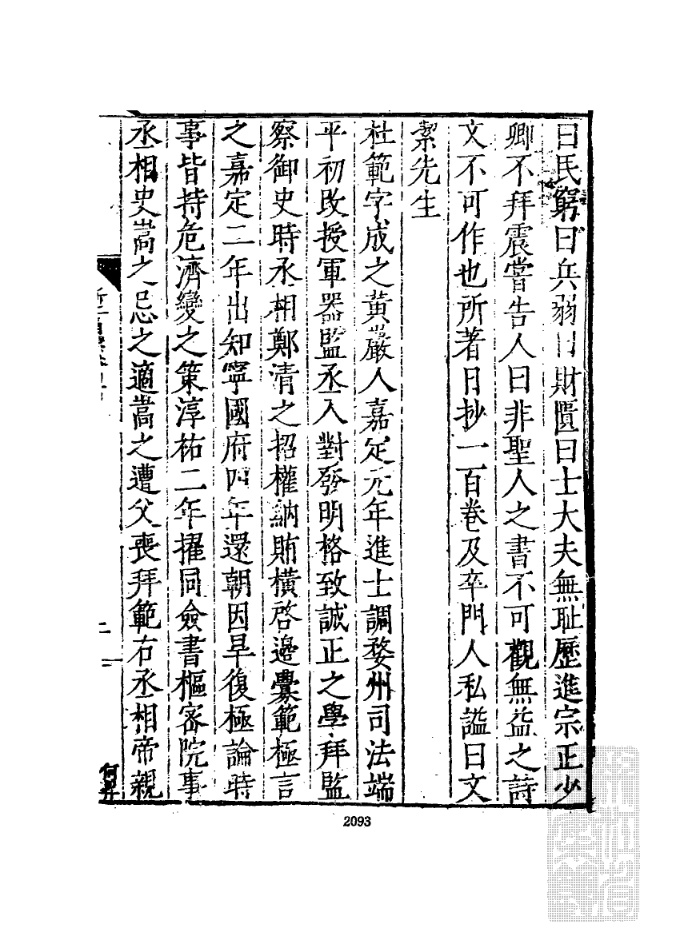 曰民窮曰兵弱曰財匱曰士大夫無恥歷進宗正少
卿不拜震嘗告人曰非聖人之書不可觀無益之詩
文不可作也所著日抄一百卷及卒門人私謚曰文
絜先生
杜範字成之黃巖人嘉定元年進士調婺州司法端
平初改授軍器監丞入對發明格致誠正之學拜監
察御史時丞相鄭清之招權納賄橫啓邊釁範極言
之嘉定二年出知寧國府四年還朝因旱復極論時
事皆持危濟變之策淳祐二年擢同僉書樞密院事
丞相史嵩之忌之適嵩之遭父喪拜範右丞相帝親
2093